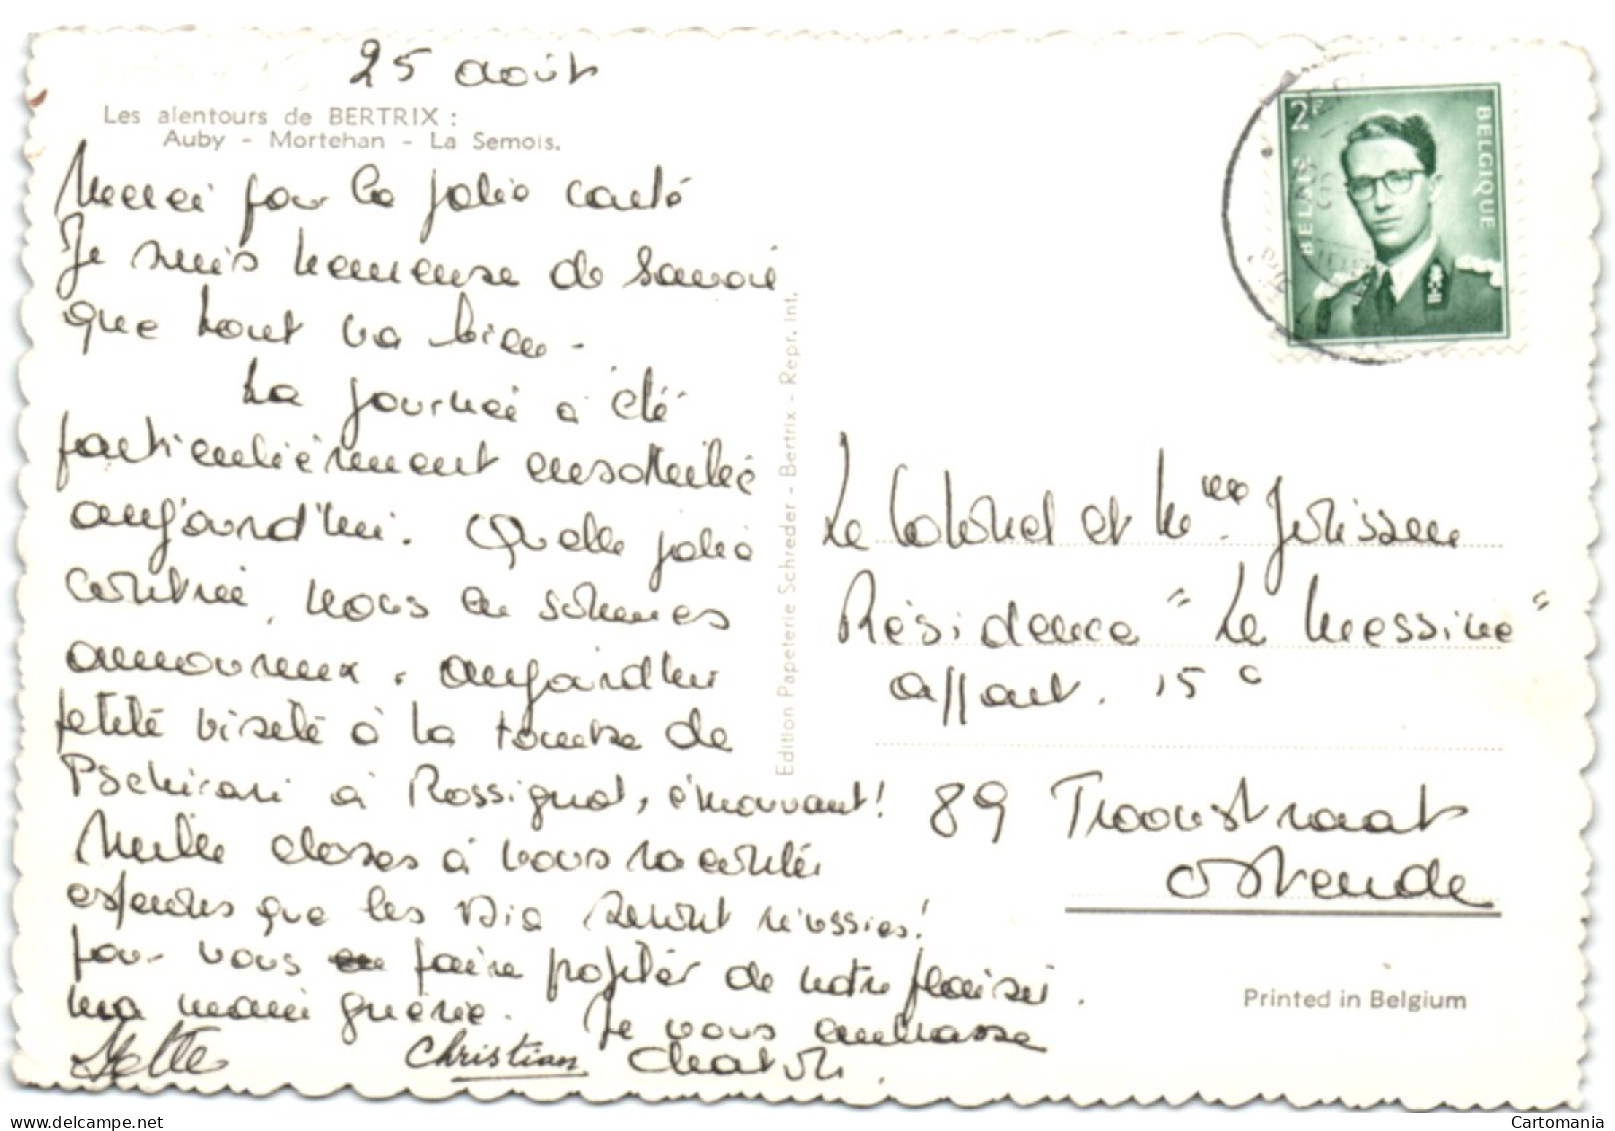 25 août
Les alentours de BERTRIX :
Auby - Mortehan - La Semois.
Merci pour la jolie carte
Je suis heureuse de savoir
que tout va bien.
La journée a été
particulièrement ensoleillée
aujourd'hui. Quelle jolie
contrée, nous en sommes
amoureux. aujourd'hui
petite visite à la tombe de
Psichari à Rossignol, émouvant!
Mille choses à vous raconter
espérons que les dia seront réussies!
pour vous faire profiter de notre plaisir.
ma guérie. Je vous embrasse
Christian
Edition Papeterie Schreder - Bertrix - Repr. int.
2F
BELGIQUE
BELGIË
Le Colonel et Mme Jorissen
Résidence "Le Messine"
appart. 15 c
89 Troonstraat
Ostende
Printed in Belgium
Cartomania